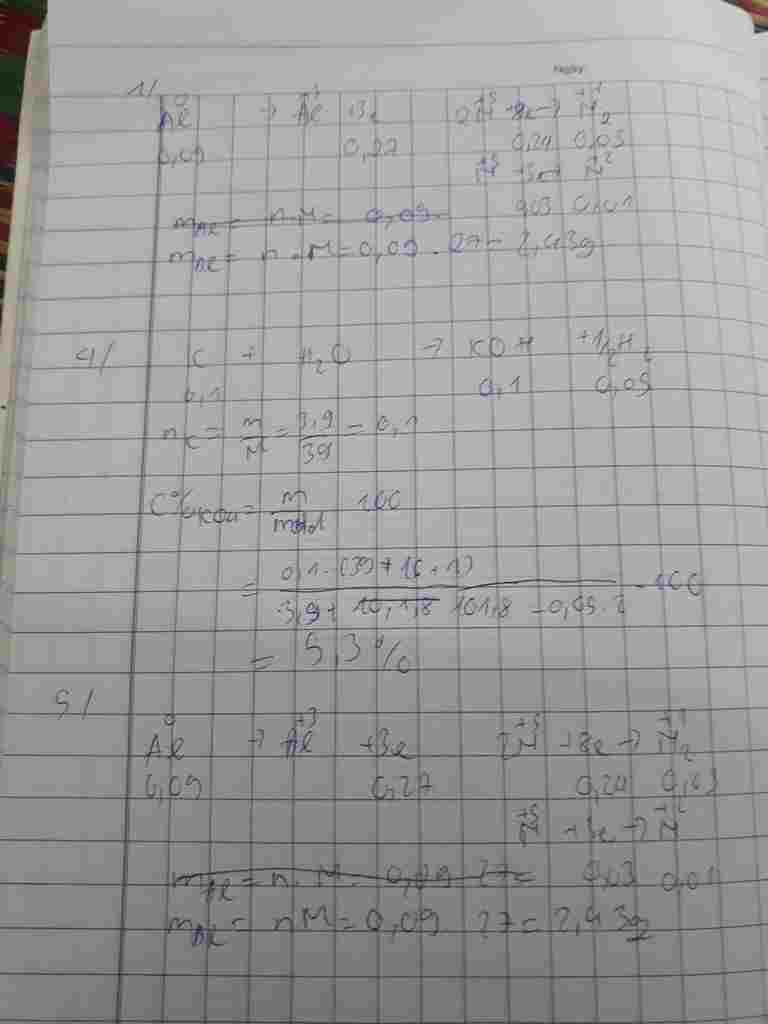 1/
Al⁰ → Al⁺³ +3e 2N⁺⁵ +8e → N₂⁺¹
0,09 0,27 0,24 0,03
N⁺⁵ +3e → N⁺²
0,03 0,01
m_Al = n.M = 0,09.
m_Al = n.M = 0,09 . 27 = 2,43g
4/ K + H₂O → KOH +1/2H₂
0,1 0,1 0,05
n_K = m/M = 3,9/39 = 0,1
C%_KOH = m/mdd 100
= 0,1.(39+16+1)/(3,9+ 10,1,8 101,8 - 0,05.2) .100
= 5,3%
5/
Al⁰ → Al⁺³ +3e 2N⁺⁵ +8e → N₂⁺¹
0,09 0,27 0,24 0,03
N⁺⁵ +3e → N⁺²
m_Al = n.M. 0,09 27= 0,03 0,01
m_Al = nM = 0,09 27 = 2,43g